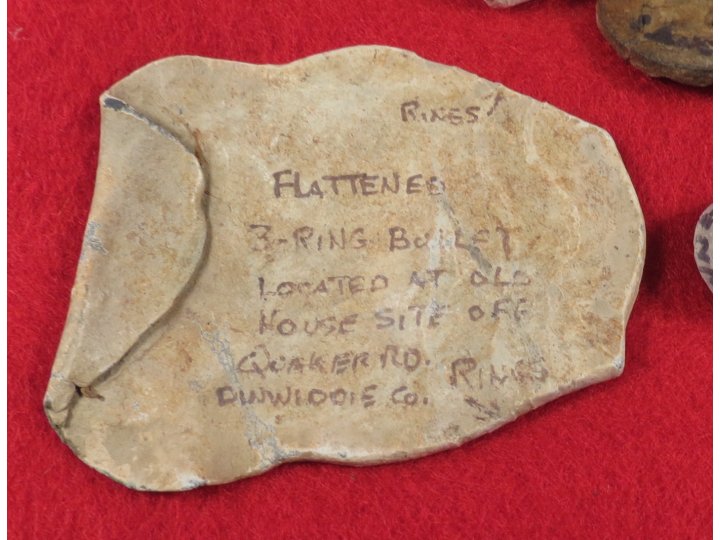 RINGS
FLATTENED
3-RING BULLET
LOCATED AT OLD
HOUSE SITE OFF
QUAKER RD.
RINGS
DINWIDDIE CO.